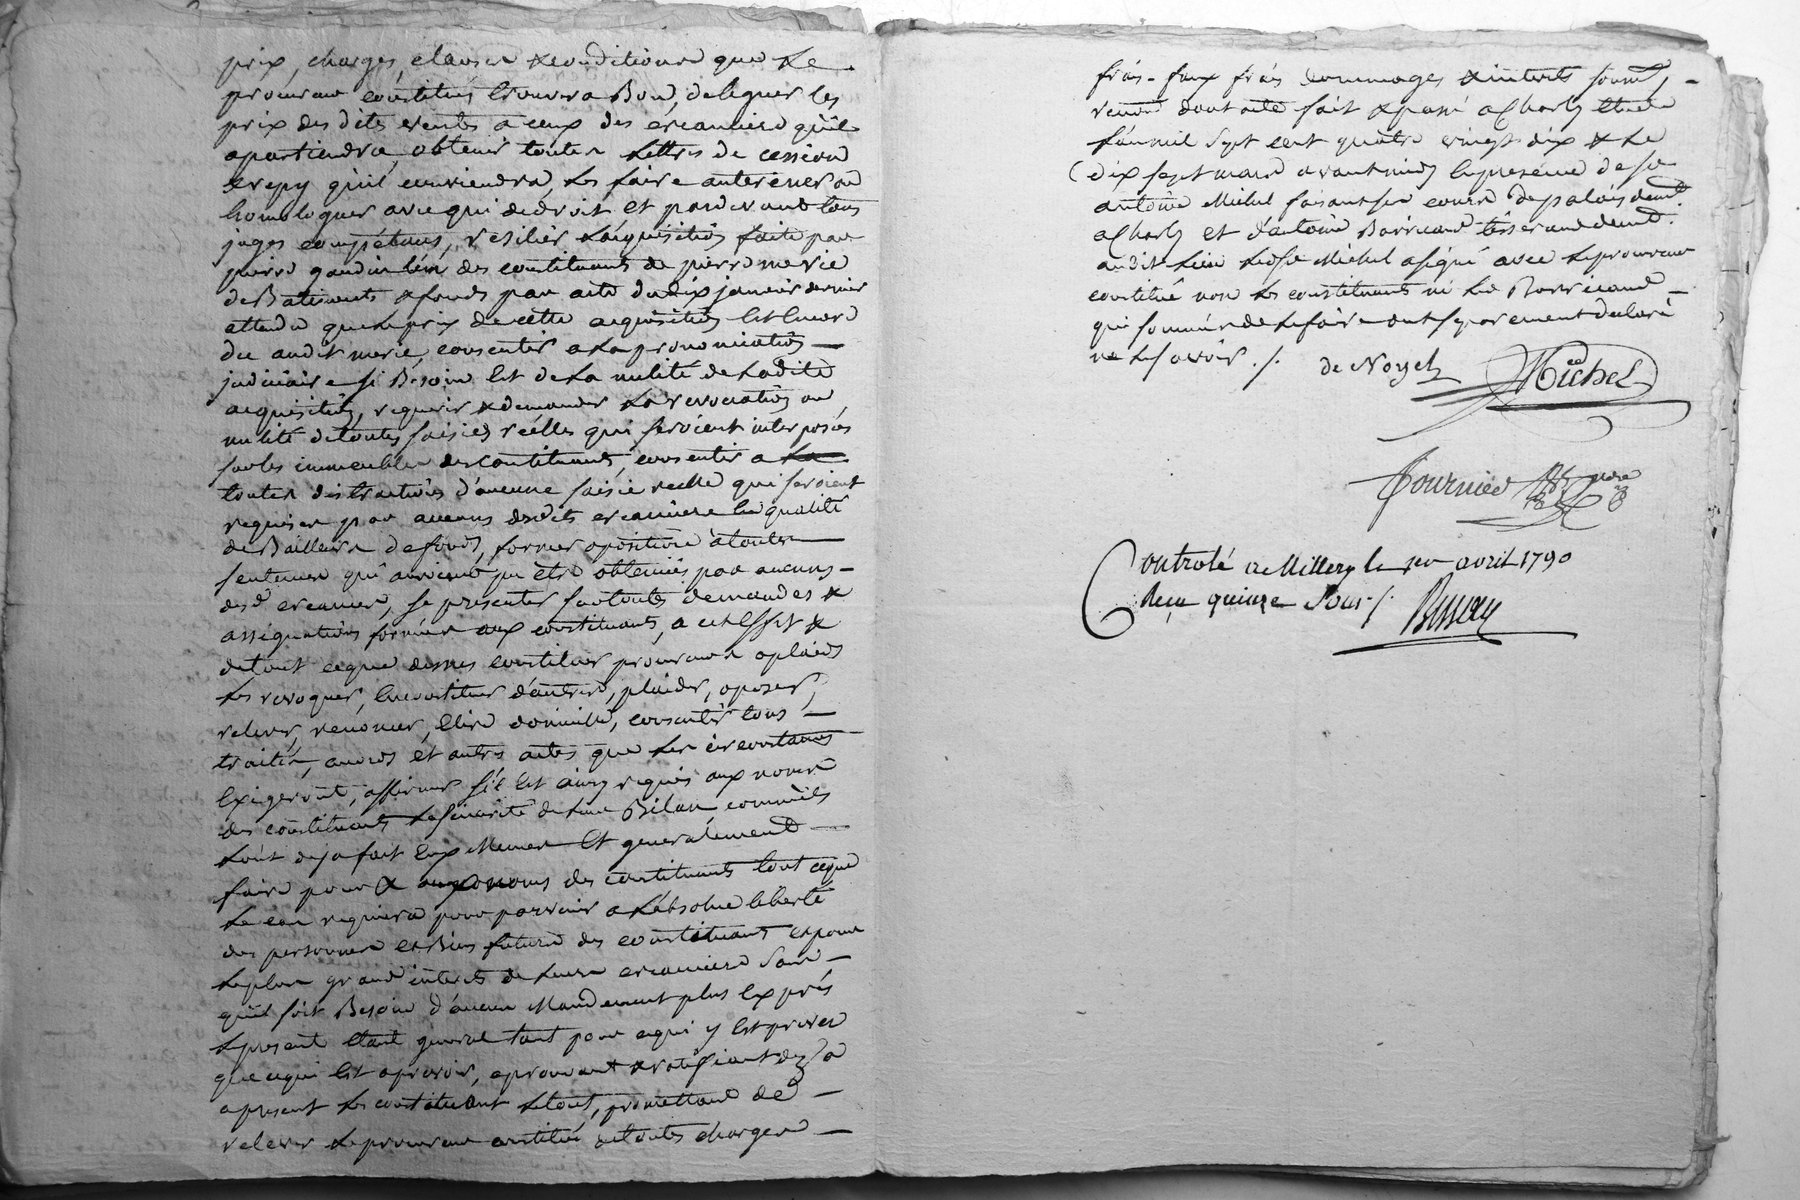 prix, charges, clauses & conditions que le
procureur constitué trouvera Bon, deleguer les
prix des dites ventes a ceux des créanciers qu'il
apartiendra, obtenir toutes Lettres de cession
& repy qu'il conviendra, les faire anteriner ou
homologuer avec qui de droit et pardevant tous
juges compétans, resilier l'acquisition faite par
pierre gaudin l'un des constituants de pierre merie
de Batiments & fonds par acte du dix janvier dernier
attendu que le prix de cette acquisition est encore
du audit merie, consentir a la prononciation
judiciaire si Besoin Est de la nulité de ladite
acquisition, requerir & demander la revocation ou
nulité de toutes saisies réelles qui seroient interposées
sur les immeubles des constituants, consentir a
toutes distractions d'aucune saisie reelle qui seroient
requises par aucuns desdits créanciers en qualité
de Bailleurs de fonds, former oposition à toutes
sentences qui auroient pu être obtenues par aucuns
desd créanciers, se presenter sur toutes demandes &
assignations formées aux constituants, a cet effet &
de tout ce que dessus constituer procureurs aplaids
les revoquer, en constituer d'autres, plaider, oposer,
relever, renoncer, élire domicille, consentir tous
traités, acords et autres actes que les circonstances
Exigeront, affirmer s'il Est ainsy requis aux noms
des constituants la sincérité de leur Bilan comme ils
l'ont deja fait Eux Memes Et generalement
faire pour & aux noms des constituants tout ce que
le cas requiera pour parvenir a l'absolue liberté
des personnes et Biens futurs des constituants et pour
le plus grand interets de leurs créanciers sans
qu'il soit Besoin d'aucun Mandement plus Exprés
le present étant general tant pour ce qui y Est prevu
que ce qui Est a prevoir, aprouvant & ratifiant dez a
a present les constituant le tout, promettant de
relever le procureur constitué de toutes charges
frais - faux frais dommages & interets soum,
renon dont acte fait & passé a Charly etude
l'an mil sept cent quatre vingt dix & le
dix sept mars avant midy En presence de sr
antoine Michel faisant ses cours de palais demt
a Charly et d'antoine Barricand tisserand demt
audit Lieu Led sr Michel a signé avec le procureur
constitué non les constituants ni led Barricand
qui sommés de le faire ont separement declaré
ne le savoir ./.
de Noyel
Michel
Tournier
Controlé a Millery le 1er avril 1790
Reçu quinze sous ./.